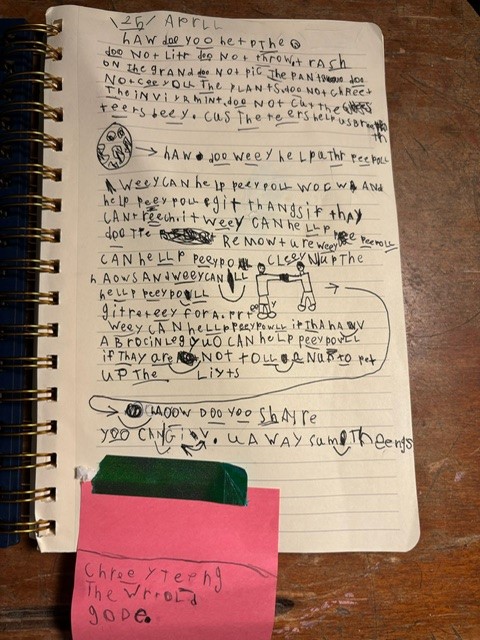 25/ APRLL
hAW doo YOO heTpThe
doo NoT LiTr doo NoT ThROW TRASh
ON The gRANd doo NoT pic The pANT doo
NoT ceeyoLL The pLANTS. doo NoT chReeT
The iNViramiNT. doo NoT CuT The
TeeRS deey. CuS The TeeRS heLp uS BRee
hAW doo weey heLp uThr peepoLL
weey CAN heLp peeypoLL woc WAND
heLp peeypoLL giT ThANgS if ThAy
CANT Reech iT weey CAN heLLp
doo The RemowTure weey peepoLL
CAN heLLp peeypo cLeeyN up The
hAowS ANd weey CAN
heLLp peeypoLL
giT reeey for A pRT
weey CAN heLLp peeypowLL if ThA hAV
A BrociN Leg yuo CAN heLp peeypowLL
if ThAy are NoT ToLL eNuf To peT
up The LiyTS
hAoow Doo yoo ShAyre
yoo CAN giv. uAWAY SumTheengS
Chree yTeeng
The Wrrold
gode.